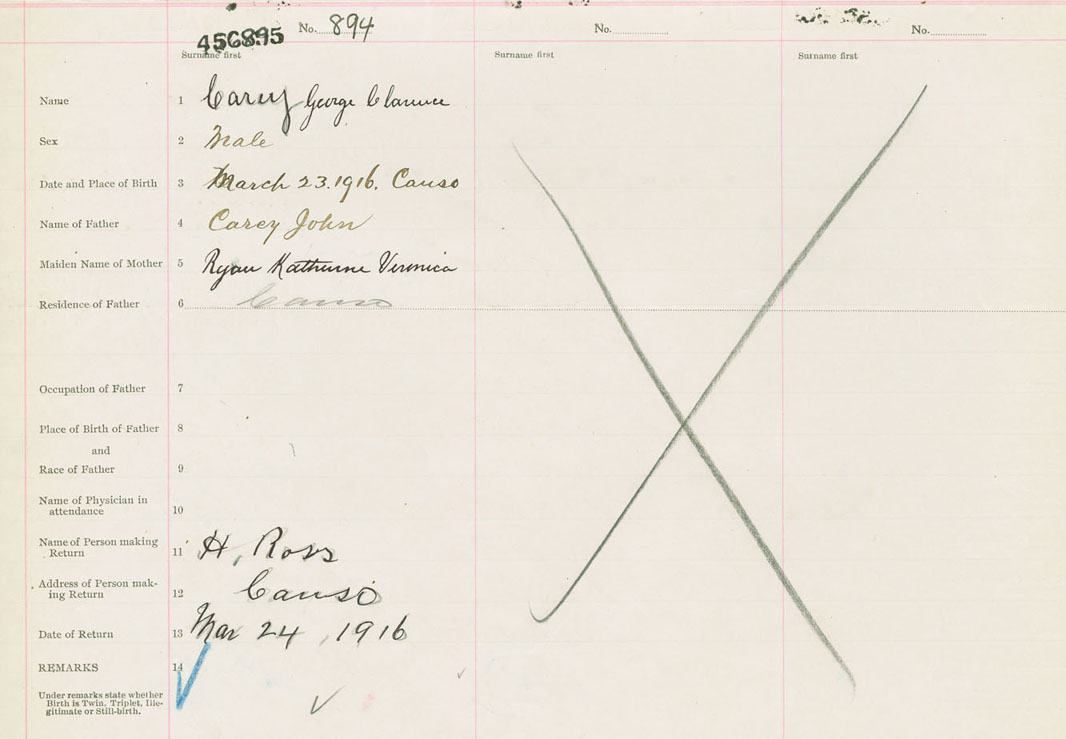 456895 No. 894 No. No.
Surname first Surname first Surname first
Name 1 Carey George Clarence
Sex 2 Male
Date and Place of Birth 3 March 23.1916. Canso
Name of Father 4 Carey John
Maiden Name of Mother 5 Ryan Katherine Veronica
Residence of Father 6 Canso
Occupation of Father 7
Place of Birth of Father 8
and
Race of Father 9
Name of Physician in
attendance 10
Name of Person making
Return 11 H. Ross
Address of Person mak-
ing Return 12 Canso
Date of Return 13 Mar 24, 1916
REMARKS 14
Under remarks state whether
Birth is Twin, Triplet, Ille-
gitimate or Still-birth.